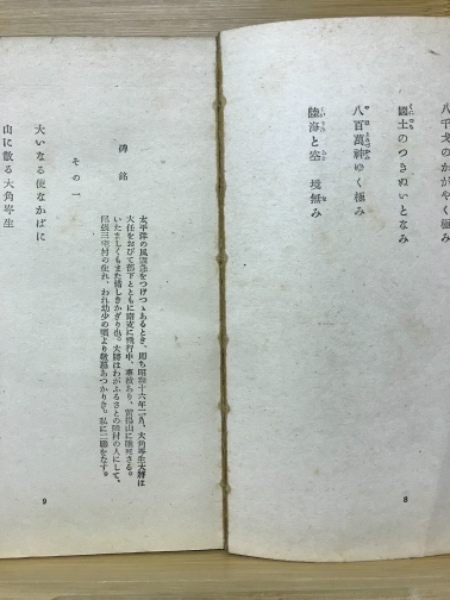 八千戈のかがやく極み
國土のつきぬいとなみ
八百萬神ゆく極み
陸海と空 境無み
8
碑銘
その一
太平洋の風雲急をつげつゝあるとき、即ち昭和十六年二月、大角岑生大將は
大任をおびて部下とともに南支に飛行中、事故あり、黃楊山に墜死さる。
いたましくもまた惜しきかぎり也。大將はわがふるさとの隣村の人にして、
尾張三宅村の生れ、われ幼少の頃より敬慕あつかりき。私に二勝をなす。
大いなる使なかばに
山に散る大角岑生
9